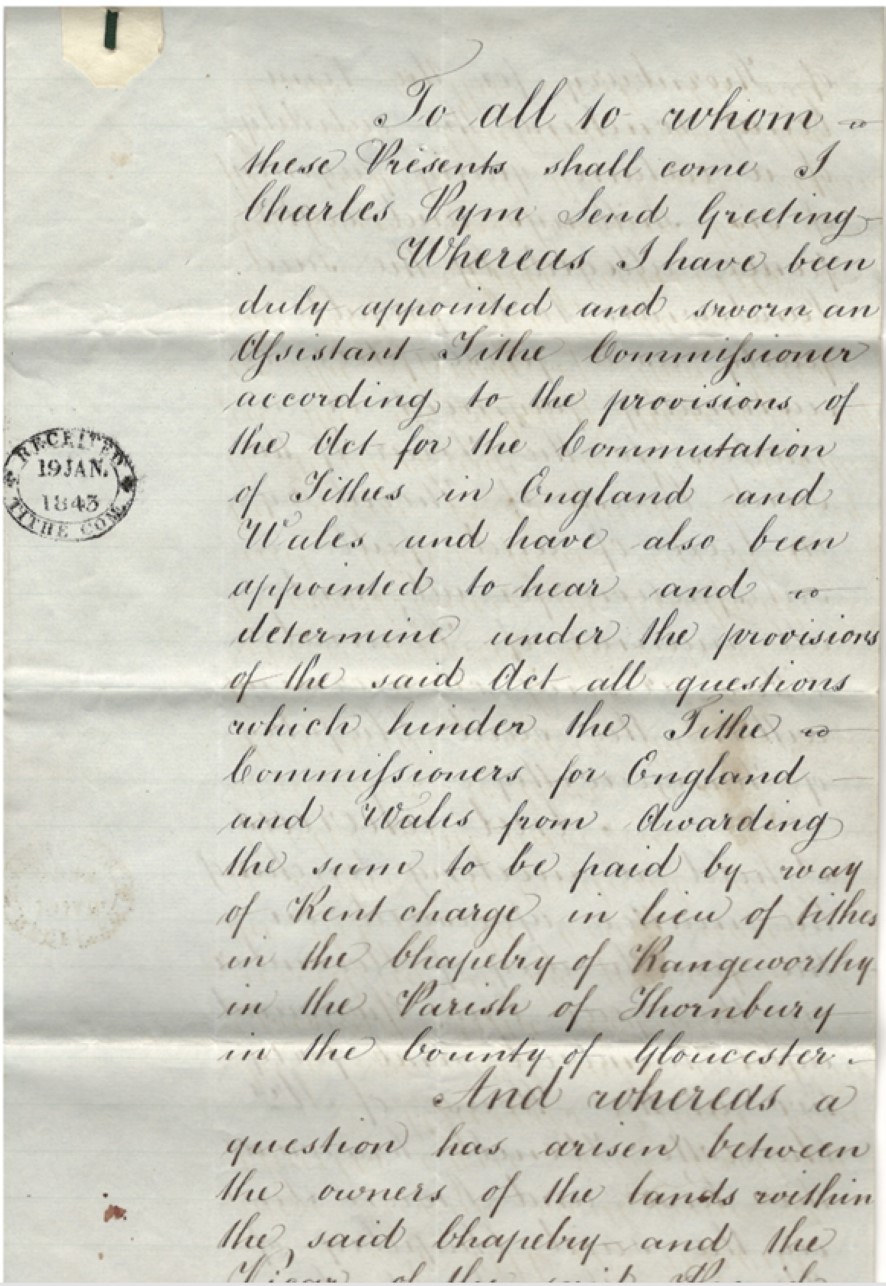 To all to whom
these Presents shall come I
Charles Pym Send Greeting
Whereas I have been
duly appointed and sworn an
Assistant Tithe Commissioner
according to the provisions of
the Act for the Commutation
of Tithes in England and
Wales and have also been
appointed to hear and
determine under the provisions
of the said Act all questions
which hinder the Tithe
Commissioners for England
and Wales from Awarding
the sum to be paid by way
of Rent charge in lieu of tithes
in the Chapelry of Rangeworthy
in the Parish of Thornbury
in the County of Gloucester.
And whereas a
question has arisen between
the owners of the lands within
the said Chapelry and the
Vicar of the said
RECEIVED
19 JAN.
1843
TITHE COM.